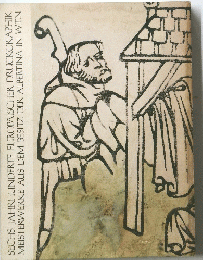 SECHS JAHRHUNDERTE EUROPÄISCHER DRUCKGRAPHIK
MEISTERWERKE AUS DEM BESITZ DER ALBERTINA IN WIEN